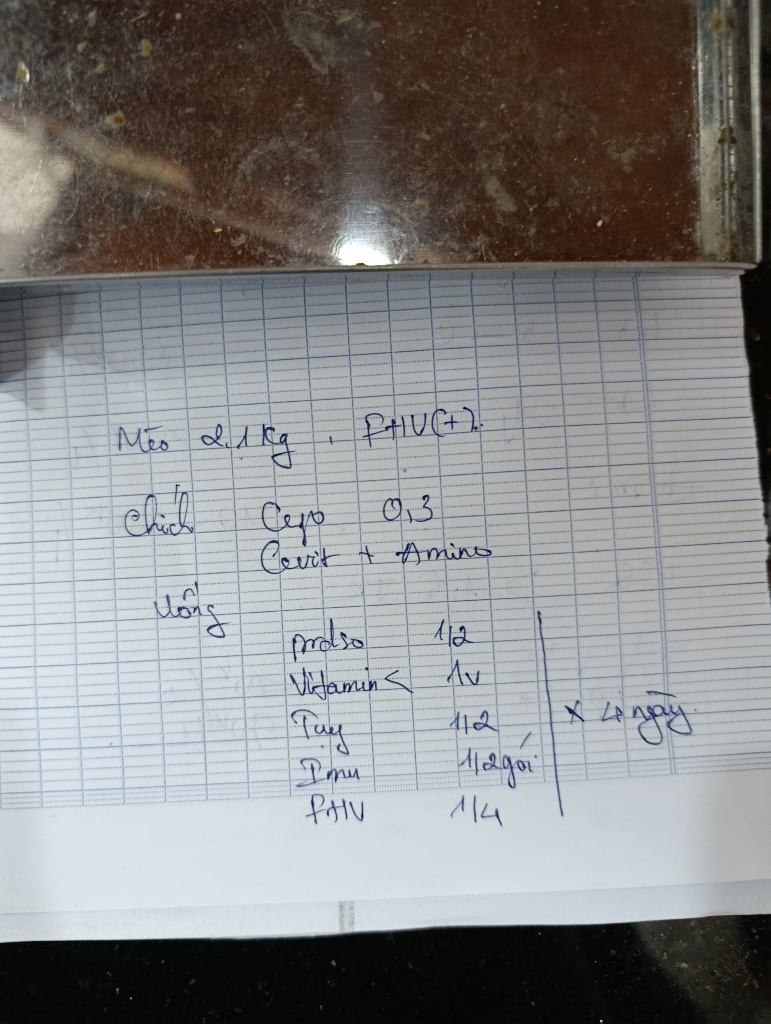 Mèo 2,1 kg . FHV(+).
Chích Cepo 0,3
Cevit + Amino
Uống
predso 1/2
Vitamin C 1v
Tuy 1/2
Imu 1/2 gói
FHV 1/4
x 4 ngày.